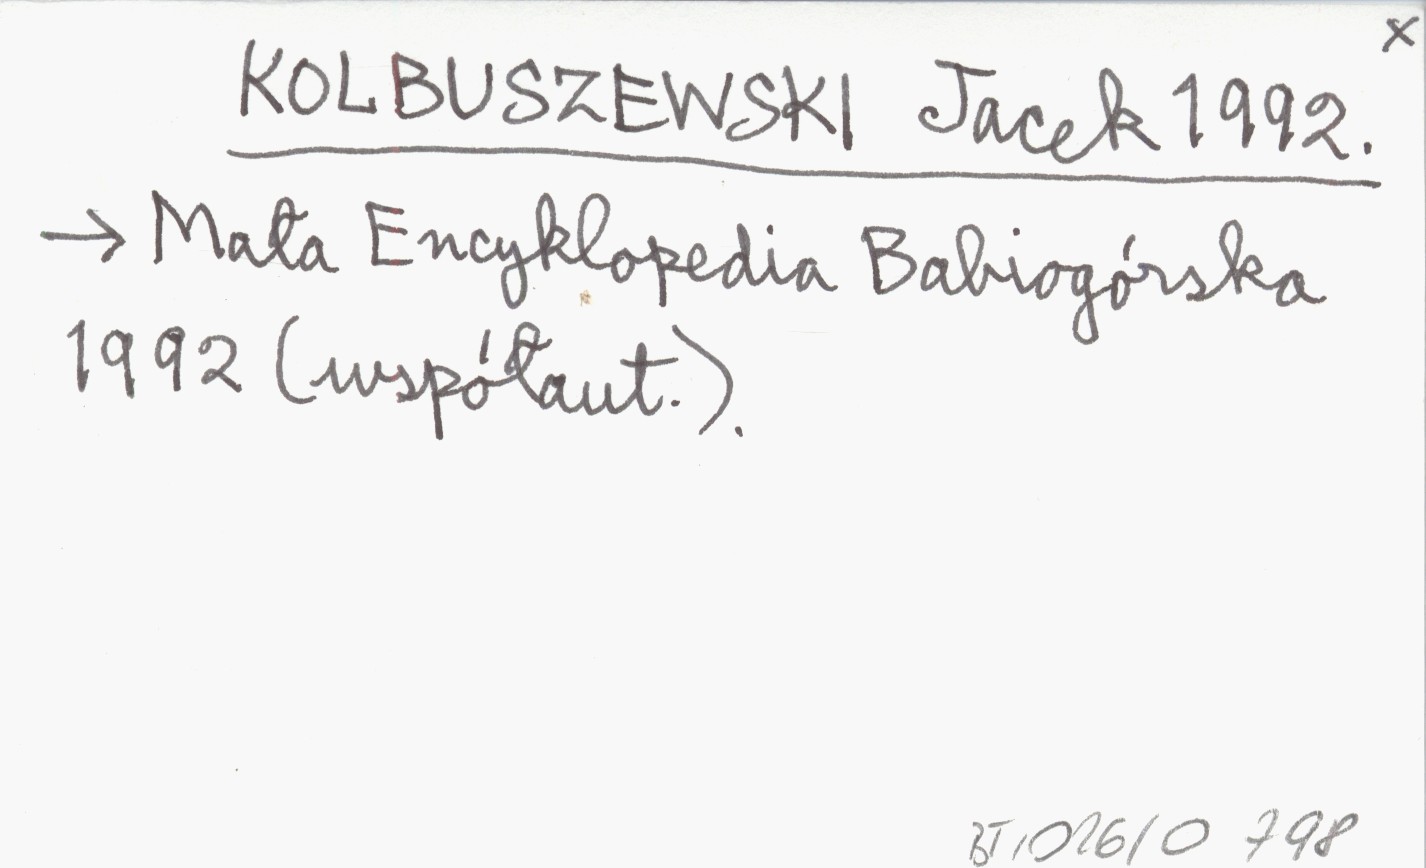 x
KOLBUSZEWSKI Jacek 1992.
→ Mała Encyklopedia Babiogórska
1992 (współaut.).
BT/026/0 798